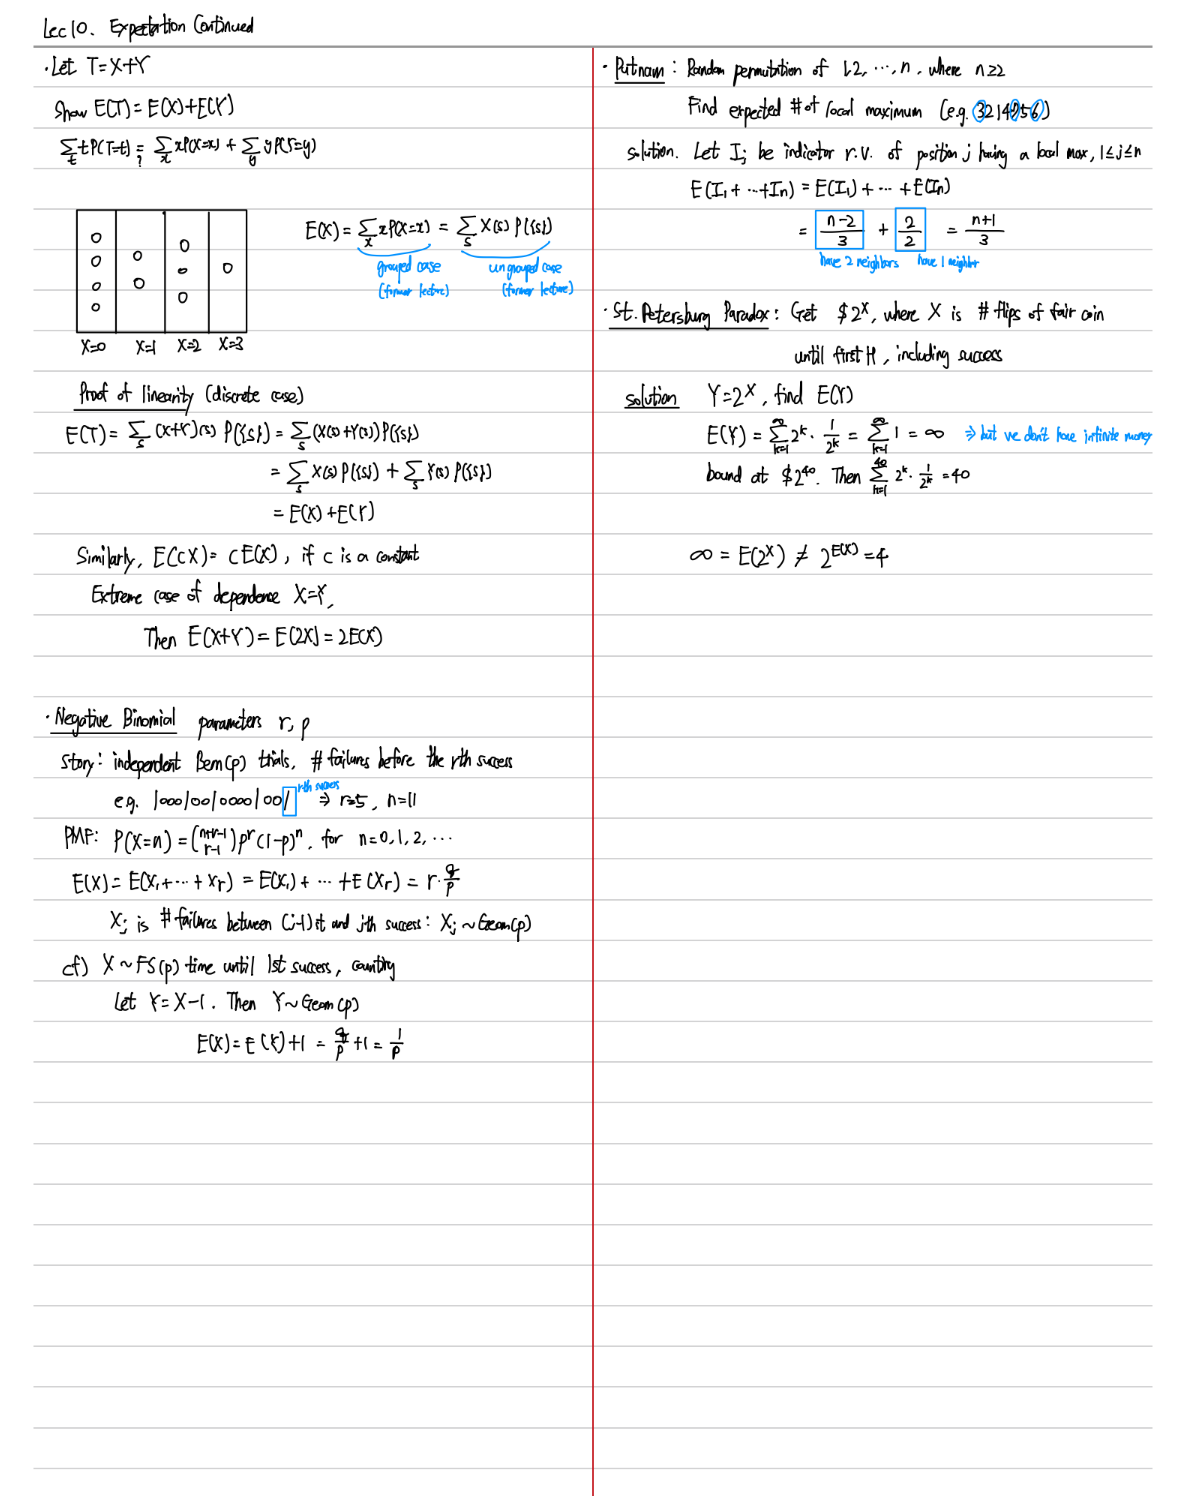 Lec 10. Expectation Continued
· Let T=X+Y
Show E(T) = E(X)+E(Y)
∑_t tP(T=t) =? ∑_x xP(X=x) + ∑_y yP(Y=y)
X=0 X=1 X=2 X=3
E(X) = ∑_x xP(X=x) = ∑_s X(s) P({s})
grouped case (former lecture)
ungrouped case (former lecture)
Proof of linearity (discrete case)
E(T) = ∑_s (X+Y)(s) P({s}) = ∑_s (X(s)+Y(s)) P({s})
= ∑_s X(s) P({s}) + ∑_s Y(s) P({s})
= E(X) + E(Y)
Similarly, E(cX) = cE(X), if c is a constant
Extreme case of dependence X=Y,
Then E(X+Y) = E(2X) = 2E(X)
· Negative Binomial parameters r, p
Story: independent Bern(p) trials, # failures before the rth success
e.g. 1000100100001001 rth success ⇒ r=5, n=11
PMF: P(X=n) = (n+r-1 r-1) p^r (1-p)^n, for n=0,1,2,···
E(X) = E(X₁+···+Xr) = E(X₁) + ··· + E(Xr) = r·q/p
Xj is # failures between (j-1)st and jth success: Xj ~ Geom(p)
cf) X ~ FS(p) time until 1st success, counting
Let Y = X-1. Then Y ~ Geom(p)
E(X) = E(Y)+1 = q/p +1 = 1/p
· Putnam: Random permutation of 1,2, ···, n, where n≥2
Find expected # of local maximum (e.g. 3214756)
solution. Let Ij be indicator r.v. of position j having a local max, 1≤j≤n
E(I₁+···+In) = E(I₁) + ··· + E(In)
= n-2/3 + 2/2 = n+1/3
have 2 neighbors have 1 neighbor
· St. Petersburg Paradox: Get $2^X, where X is # flips of fair coin
until first H, including success
solution Y=2^X, find E(Y)
E(Y) = ∑_{k=1}^∞ 2^k · 1/2^k = ∑_{k=1}^∞ 1 = ∞ ⇒ but we don't have infinite money
bound at $2^40. Then ∑_{k=1}^40 2^k · 1/2^k = 40
∞ = E(2^X) ≠ 2^E(X) = 4